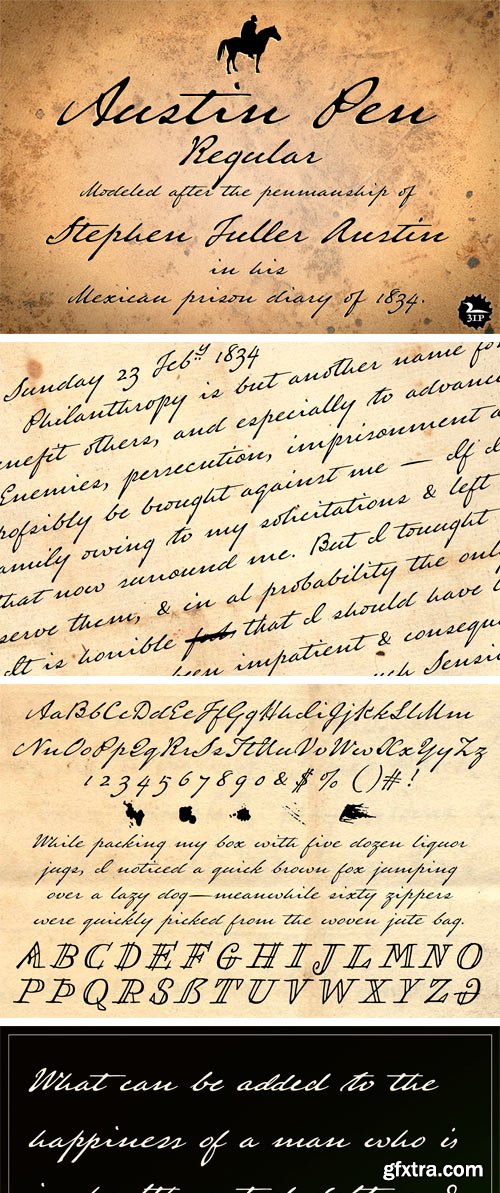 Austin Pen
Regular
Modeled after the penmanship of
Stephen Fuller Austin
in his
Mexican prison diary of 1834.
3IP
Sunday 23 Feby 1834
Philanthropy is but another name for
enefit others, and especially to advance
Enemies, persecution, imprisonment a
rofsibly be brought against me — If I
amily owing to my solicitations & left
that now surround me. But I tought
serve them, & in al probability the only
It is horrible that I should have
been impatient & consequ
ch Sensi
AaBbCcDdEeFfGgHhIiJjKkLlMm
NnOoPpQqRrSsTtUuVvWwXxYyZz
1234567890&$%()#!
While packing my box with five dozen liquor
jugs, I noticed a quick brown fox jumping
over a lazy dog—meanwhile sixty zippers
were quickly picked from the woven jute bag.
ABCDEFGHIJLMNO
PÞQRSßTUVWXYZ
What can be added to the
happiness of a man who is
gfxtra.com